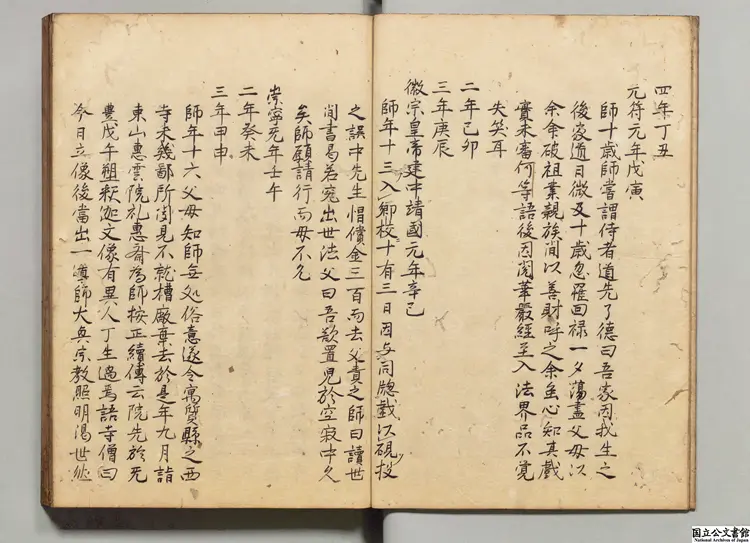 四年丁丑
元符元年戊寅
師十歳師嘗謂侍者道先了德曰吾家因我生之
後家道日微及十歳忽罹回禄一夕蕩盡父母以
余命破祖業親族間以善財呼之余無心知其戲
實未審何等語後因閲華嚴經至入法界品不覚
失笑耳
二年己卯
三年庚辰
徽宗皇帝建中靖國元年辛巳
師年十三入郷校十有三日因与同牕戲以硯投
之誤中先生帽償金三百而去父責之師曰讀世
間書曷若究出世法父曰吾欲置児於空寂中久
矣師願請行而母不允
崇寧元年壬午
二年癸未
三年甲申
師年十六父母知師無処俗意遂令寓質縣之西
寺未幾鄙所聞見不乾槽廠棄去於是年九月詣
東山惠雲院礼惠齊為師按正續傳云院先於元
豊戊午塑釈迦文像有異人丁生過焉語寺僧曰
今日立像後當出一導師大興宗教照明濁世然
国立公文書館
National Archives of Japan